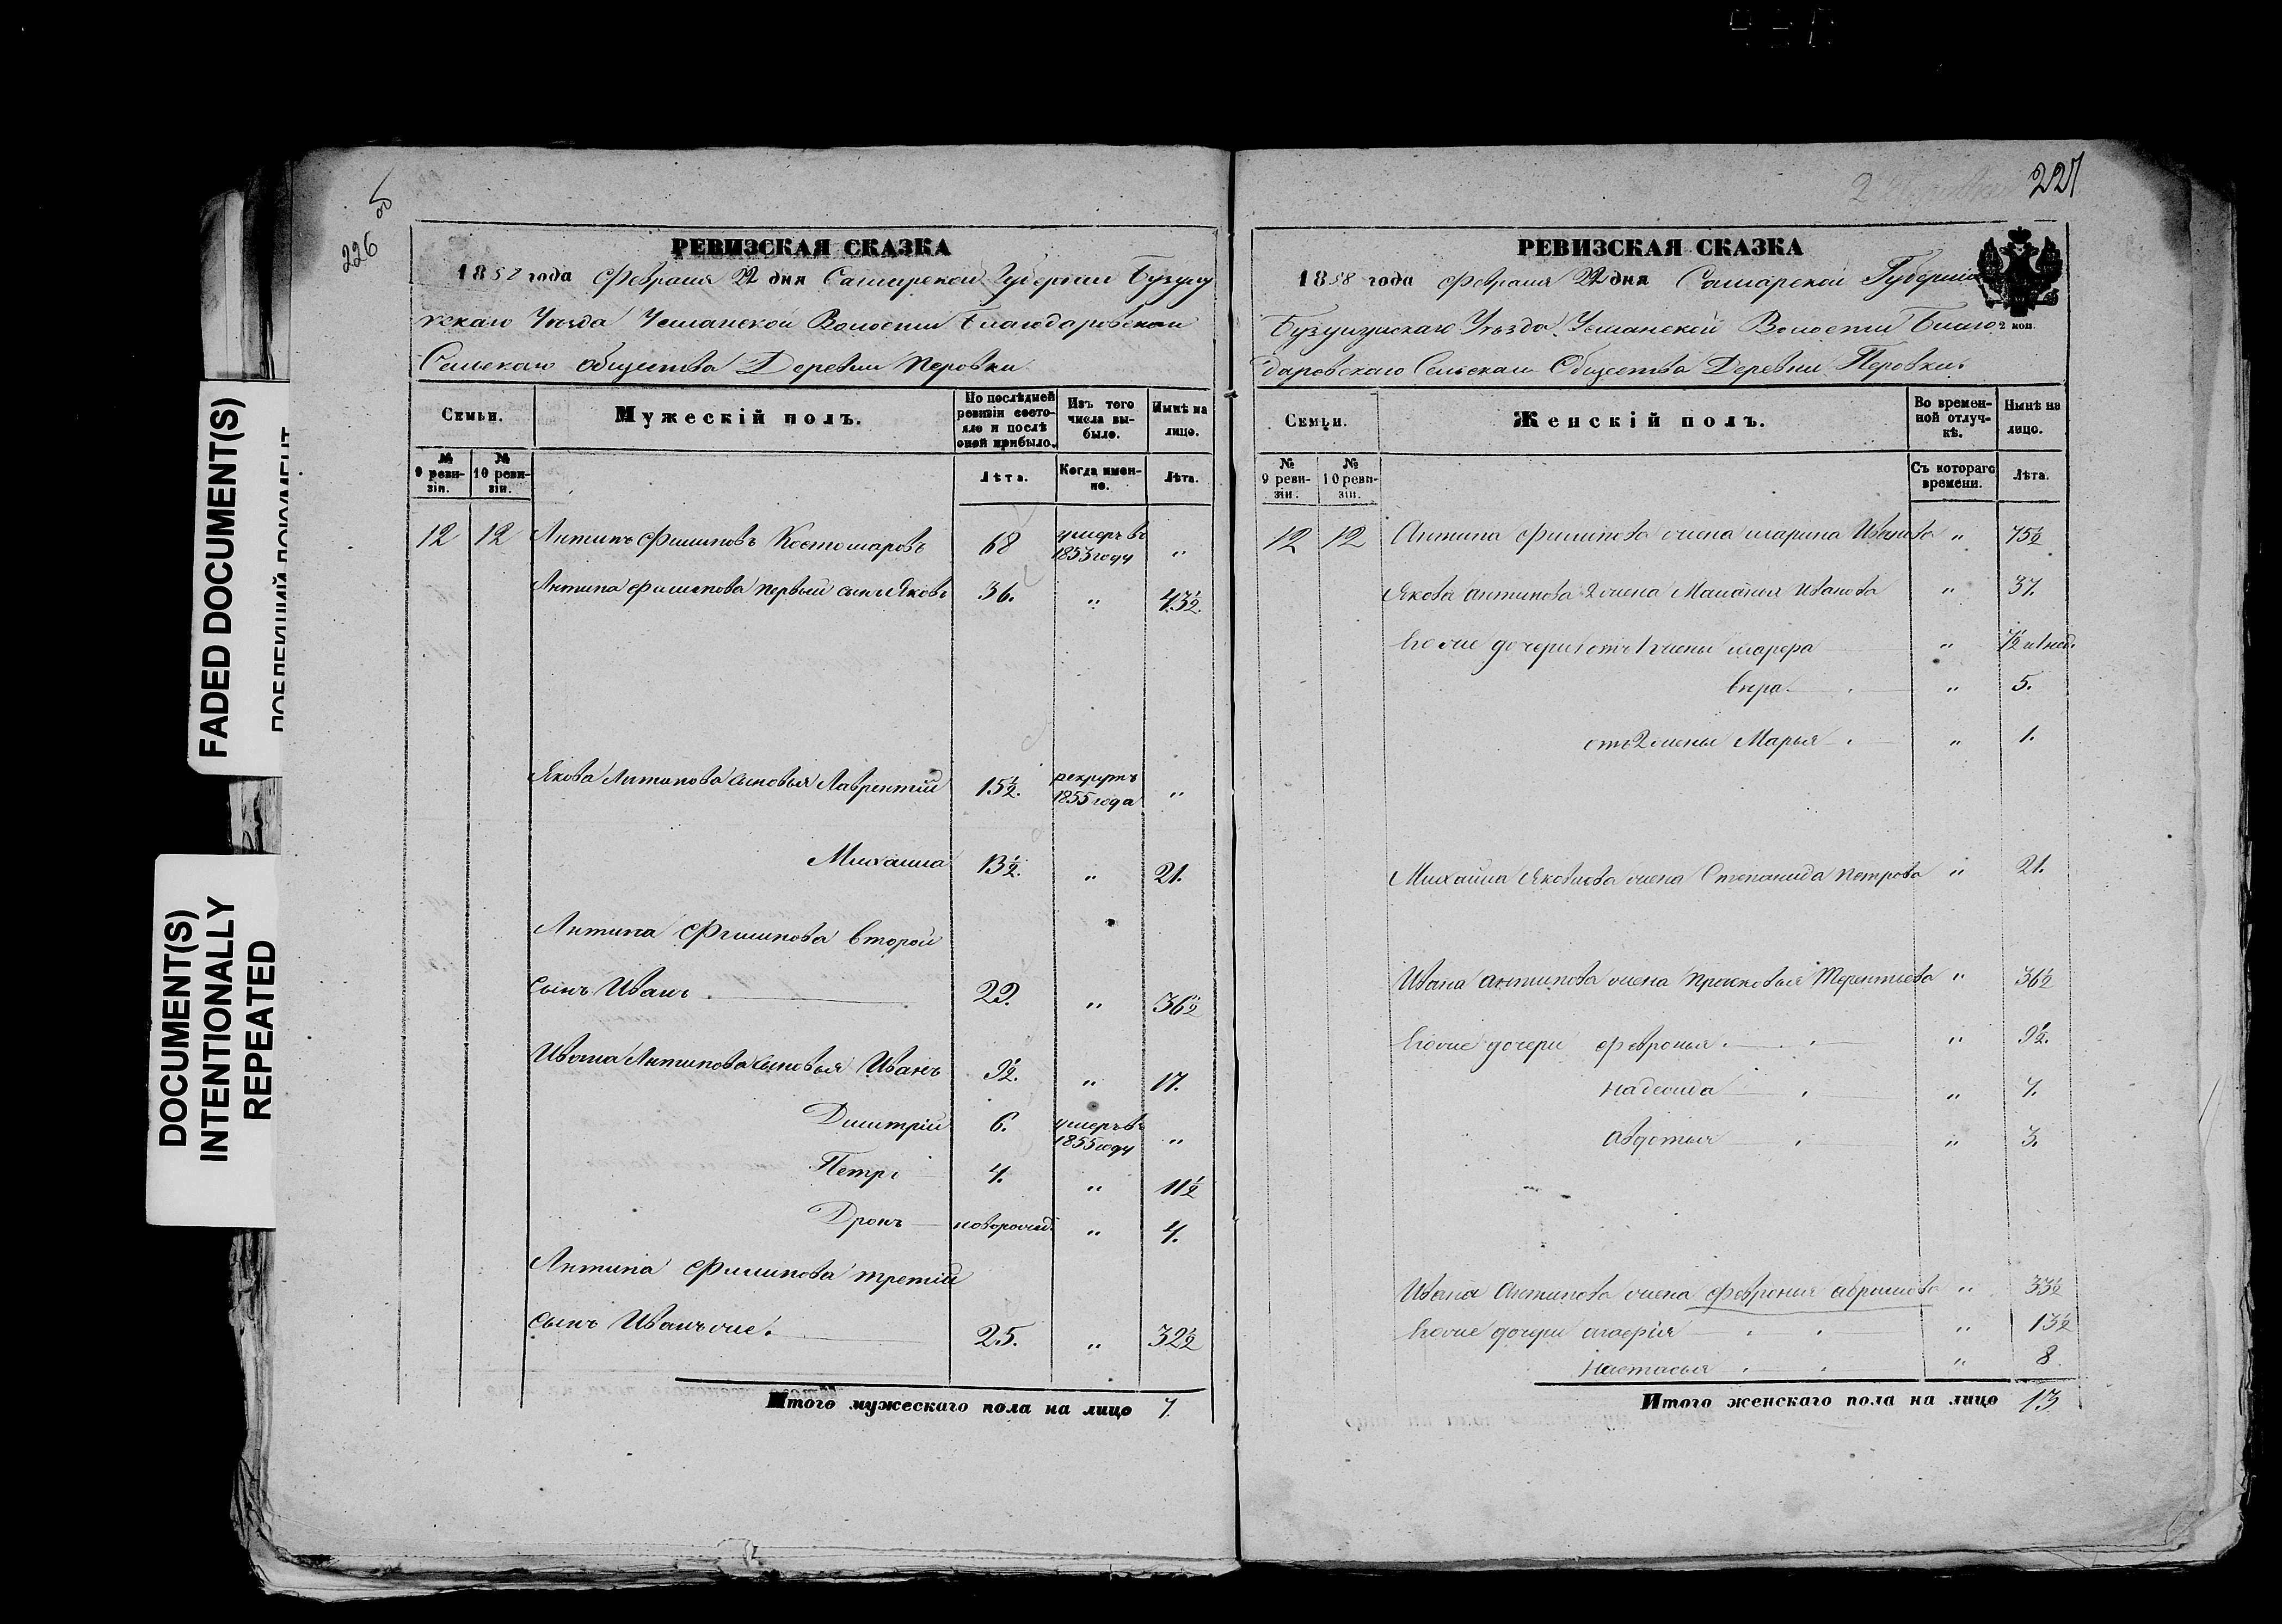 226
об
РЕВИЗСКАЯ СКАЗКА
1858 года Февраля 22 дня Самарской Губернии Бузулу
кскаго Уѣзда Усманской Волости Благодаровскаго
Сельскаго общества Деревни Перовки
Семьи.
Мужескій полъ.
По послѣдней ревизіи состояло и послѣ оной прибыло.
Изъ того числа выбыло.
Нынѣ на лицо.
№ 9 ревизіи.
№ 10 ревизіи.
Лѣта.
Когда именно.
Лѣта.
12 12 Антипъ Филиповъ Костомаровъ 68 умеръ въ 1853 году "
Антипа Филипова первый сынъ Яковъ 36. " 43½.
Якова Антипова сыновья Лаврентій 15½. рекрутъ 1855 года "
Михаила 13½. " 21.
Антипа Филипова второй
сынъ Иванъ 29. " 36½
Ивана Антипова сыновья Иванъ 9½. " 17.
Димитрій 6. умеръ въ 1855 году "
Петръ 4. " 11½
Дронъ новорожд. " 4.
Антипа Филипова третій
сынъ Иванъ же. 25. " 32½
Итого мужескаго пола на лицо 7.
227
РЕВИЗСКАЯ СКАЗКА
1858 года Февраля 22 дня Самарской Губерніи
Бузулукскаго Уѣзда Усманской Волости Благо
2 коп.
даровскаго Сельскаго Общества Деревни Перовки.
Семьи.
Женскій полъ.
Во временной отлучкѣ.
Нынѣ на лицо.
№ 9 ревизіи.
№ 10 ревизіи.
Съ котораго времени.
Лѣта.
12 12 Антипа Филипова жена Марина Иванова " 75½
Якова Антипова 2 жена Маланья Иванова " 37.
Его же дочери отъ 1 жены Марфа "
Вѣра " 5.
отъ 2 жены Марья " 1.
Михайла Яковлева жена Степанида Петрова " 21.
Ивана Антипова жена Прасковья Терентьева " 36½
Его же дочери Февронья " 9½.
Надежда " 7.
Авдотья " 3.
Ивана Антипова жена Феврония Абрамова " 33½
Его же дочери " 13½
Настасья " 8.
Итого женскаго пола на лицо 13
FADED DOCUMENT(S)
DOCUMENT(S)
INTENTIONALLY
REPEATED